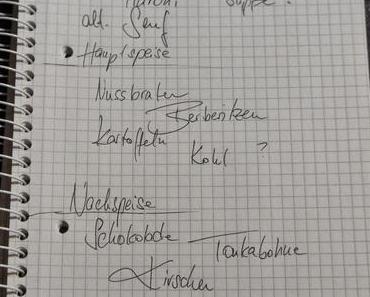 Suppe.
alt. Senf
Hauptspeise
Nussbraten
Berberitzen
Kartoffeln
Kohl ?
Nachspeise
Schokolade Tonkabohne
Kirschen